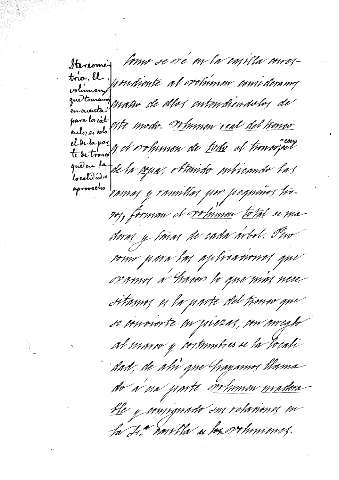 Stereome-
tría. El
volumen
que tomamos
en cuenta
para los cál-
culos es sólo
el de la par-
te de tronco
que en la
localidad se
aprovecha
Como se vé en la casilla corres-
pondiente al volúmen consideramos
cuatro de ellos entendiendolos de
este modo. Volumen real del tronco
y el volumen de todo el tronco
de la copa, obtenido cubicando las
ramas y ramillas por pequeños tro-
zos, forman el volúmen total de ma-
deras y leñas de cada árbol. Pero
como para las aplicaciones que
vamos á hacer lo que más nece-
sitamos es la parte del tronco que
se convierte en piezas, con arreglo
al marco y costumbres de la locali-
dad, de ahí que hayamos llama-
do á esa parte volumen madera-
ble y consignado sus relaciones en
la casilla de los volúmenes.